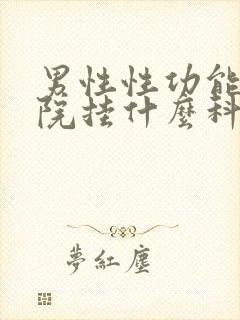 男性性功能
院挂什麼科
夢紅塵